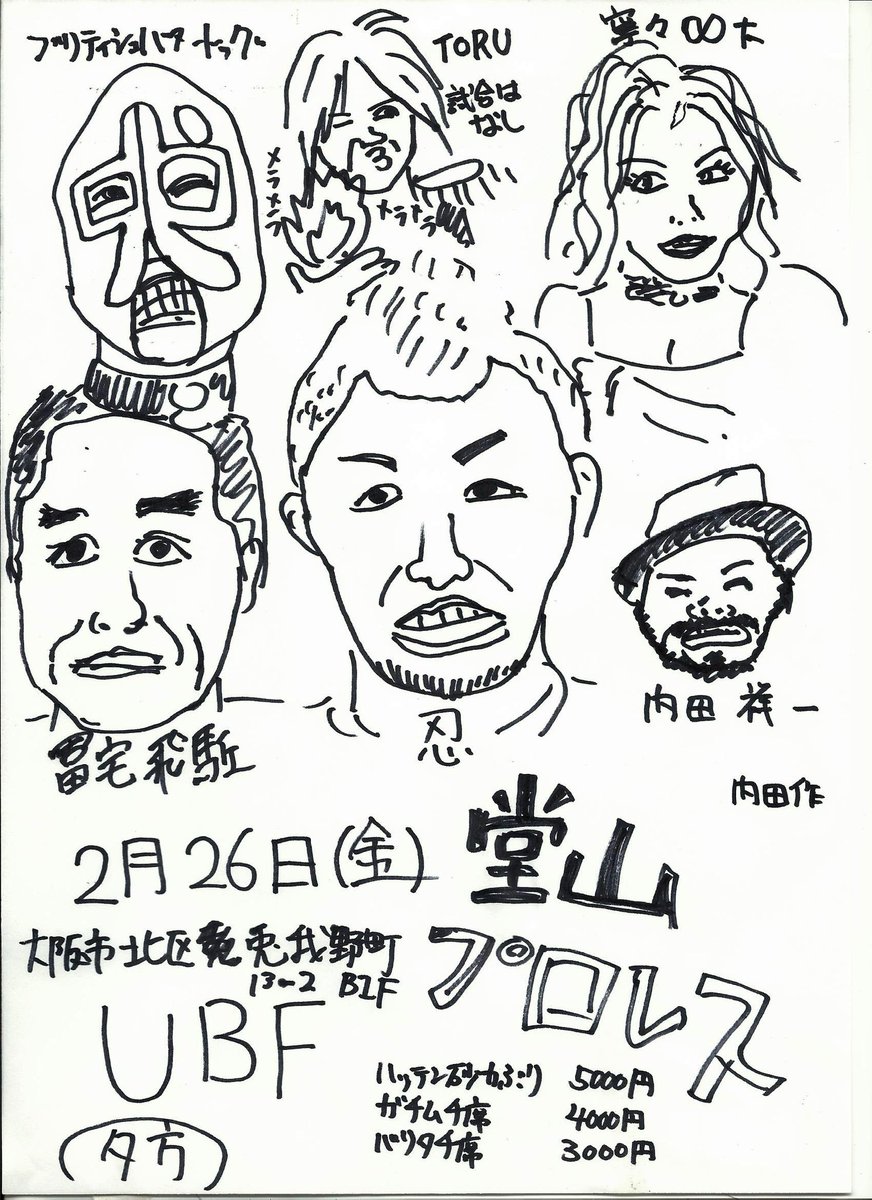 TORU
寧々∞大
試合は
なし
メラメラ
メラメラ
冨宅飛駈
忍
内田祥一
内田作
2月26日(金)
堂山
プロレス
大阪市北区兎我野町
13-2 B1F
UBF
(夕方)
ハッテン砂かぶり 5000円
ガチムチ席 4000円
バリタチ席 3000円